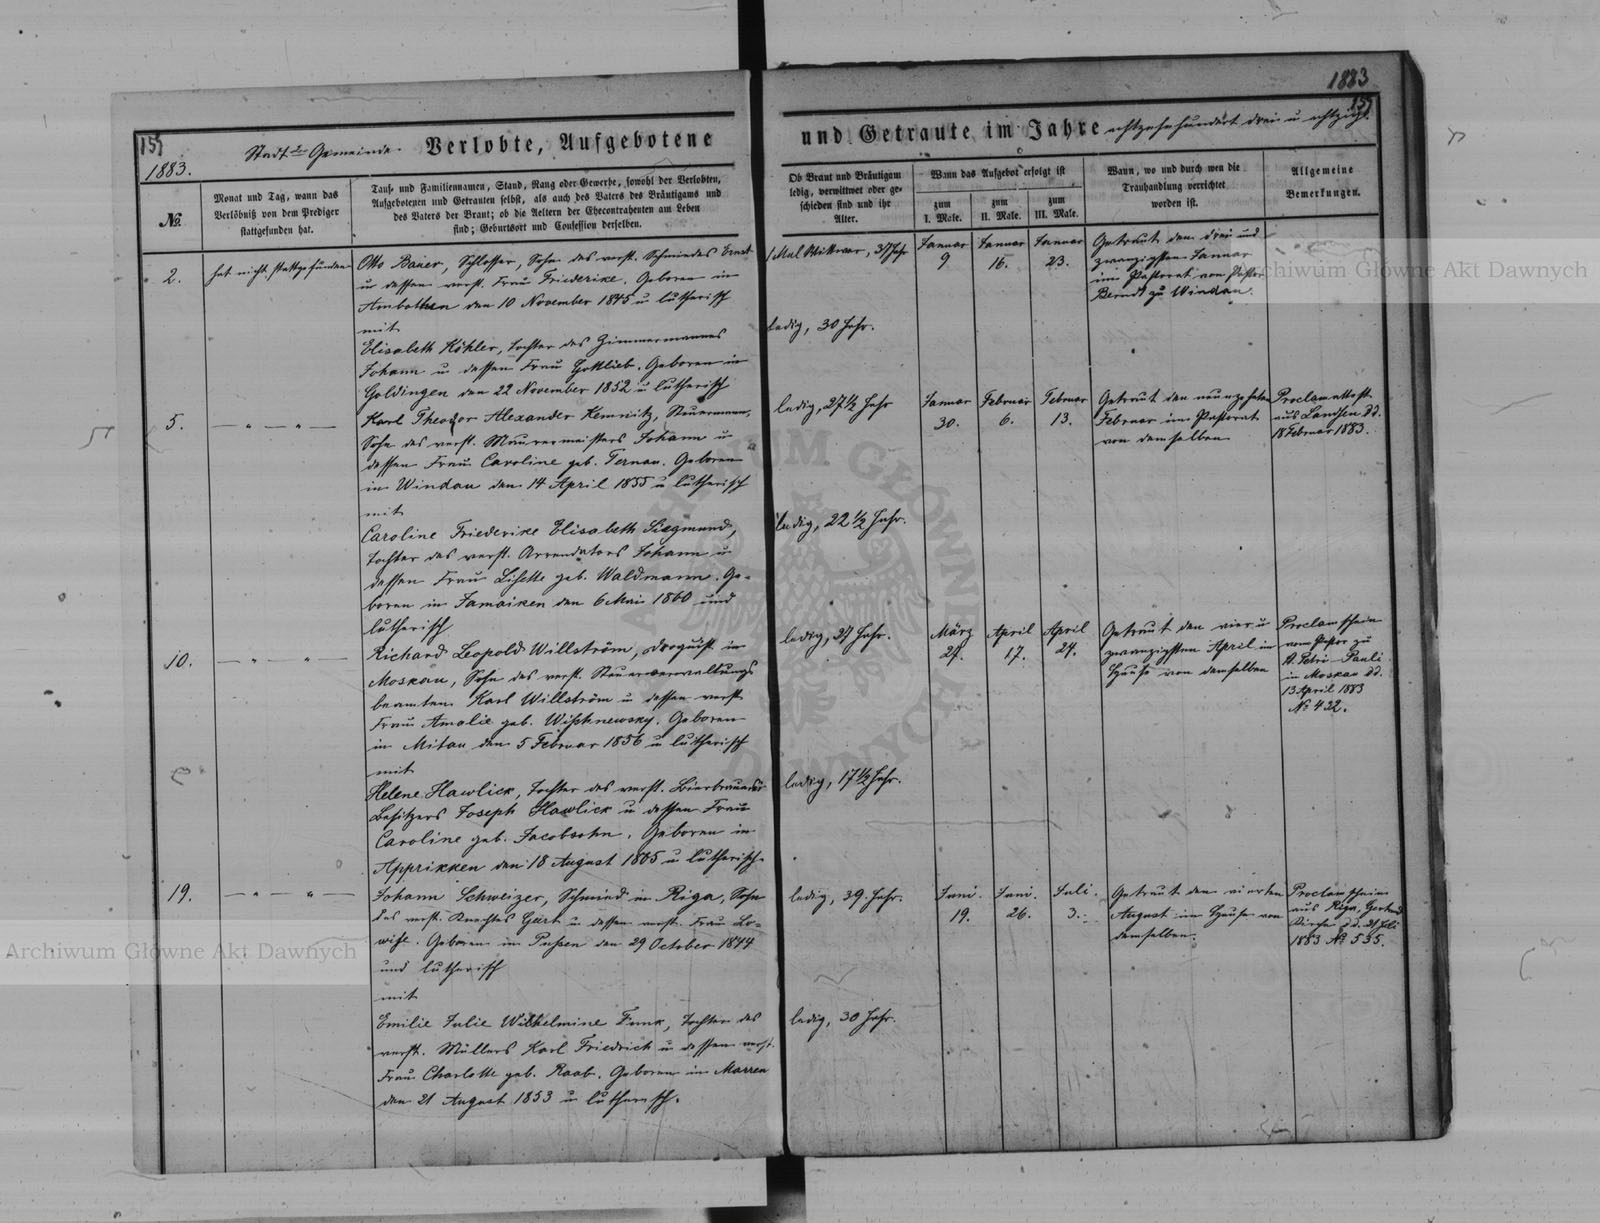 1883
157
157
1883.
Stadt-Gemeinde. Verlobte, Aufgebotene
und Getraute im Jahre achtzehnhundert drei u achtzig.
№
Monat und Tag, wann das
Verlöbniß von dem Prediger
stattgefunden hat.
Tauf- und Familiennamen, Stand, Rang oder Gewerbe, sowohl der Verlobten,
Aufgebotenen und Getrauten selbst, als auch des Vaters des Bräutigams und
des Vaters der Braut; ob die Aeltern der Ehecontrahenten am Leben
sind; Geburtsort und Confession derselben.
Ob Braut und Bräutigam
ledig, verwittwet oder ge-
schieden sind und ihr
Alter.
Wann das Aufgebot erfolgt ist
zum
I. Male.
zum
II. Male.
zum
III. Male.
Wann, wo und durch wen die
Trauhandlung verrichtet
worden ist.
Allgemeine
Bemerkungen.
2.
hat nicht stattgefunden
Otto Bauer, Schlosser, Sohn des verst. Schmiedes Ernst
u dessen verst. Frau Friederike. Geboren in
Ambothen den 10 November 1845 u lutherisch
mit
Elisabeth Köhler, Tochter des Zimmermannes
Johann u dessen Frau Gottlieb. Geboren in
Goldingen den 22 November 1852 u lutherisch
1 Mal Wittwer, 37 Jahr
ledig, 30 Jahr.
Januar
9
Januar
16.
Januar
23.
Getraut den drei und
zwanzigsten Januar
im Pastorat von Pastor
Berndt zu Windau.
5.
— " — " —
Karl Theodor Alexander Kemnitz, Steuermann,
Sohn des verst. Maurermeisters Johann u
dessen Frau Caroline geb. Ternau. Geboren
in Windau den 14 April 1855 u lutherisch
mit
Caroline Friederike Elisabeth Siegmund,
Tochter des verst. Arrendators Johann u
dessen Frau Lisette geb. Waldmann. Ge-
boren in Jamaiken den 6 Mai 1860 und
lutherisch
ledig, 27 1/2 Jahr
ledig, 22 1/2 Jahr.
Januar
30.
Februar
6.
Februar
13.
Getraut den neunzehnten
Februar im Pastorat
von demselben
Proclamattest.
aus Landsen dd.
18 Februar 1883.
10.
— " — " —
Richard Leopold Willström, Droguist in
Moskau, Sohn des verst. Steuerverwaltungs
beamten Karl Willström u dessen verst
Frau Amalie geb. Wischnewsky. Geboren
in Mitau den 5 Februar 1856 u lutherisch
mit
Helene Hawlick, Tochter des verst. Bierbrauerei
Besitzers Joseph Hawlick u dessen Frau
Caroline geb. Jacobsohn. Geboren in
Apprikken den 18 August 1865 u lutherisch.
ledig, 27 Jahr.
ledig, 17 1/2 Jahr.
März
27.
April
17.
April
24.
Getraut den vier u
zwanzigsten April im
Hause von demselben
Proclamschein
vom Pastor zu
St. Petri-Pauli
in Moskau dd.
13 April 1883
№ 422.
19.
— " — " —
Johann Schweizer, Schmied in Riga, Sohn
des verst. Knechtes Gärt u dessen verst. Frau Lo-
wise. Geboren in Pussen den 29 October 1844
und lutherisch
mit
Emilie Julie Wilhelmine Funk, Tochter des
verst. Müllers Karl Friedrich u dessen verst.
Frau Charlotte geb. Raab. Geboren in Marren
den 21 August 1853 u lutherisch.
ledig, 39. Jahr.
ledig, 30 Jahr.
Juni.
19.
Juni.
26.
Juli.
3.
Getraut den vierten
August im Hause von
demselben.
Proclamschein
aus Riga, Gertrud
Kirche dd. 31 Juli
1883 № 535.
Archiwum Główne Akt Dawnych
Archiwum Główne Akt Dawnych
ARCHIWUM GŁÓWNE AKT DAWNYCH